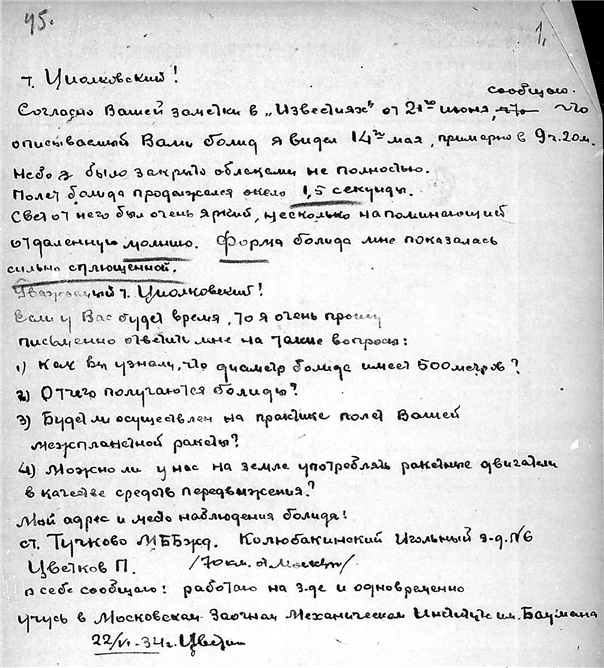 45.
1.
т. Циолковский!
сообщаю.
Согласно Вашей заметки в „Известиях" от 21го июня, что
описываемый Вами болид я видел 14го мая, примерно в 9ч.20м.
Небо было закрыто облаками не полностью.
Полет болида продолжался около 1,5 секунды.
Свет от него был очень яркий, несколько напоминающий
отдаленную молнию. Форма болида мне показалась
сильно сплющенной.
Уважаемый т. Циолковский!
Если у Вас будет время, то я очень прошу
письменно ответить мне на такие вопросы:
1) Как Вы узнали, что диаметр болида имеет 500 метров?
2) Отчего получаются болиды?
3) Будет ли осуществлен на практике полет Вашей
межпланетной ракеты?
4) Можно ли у нас на земле употреблять ракетные двигатели
в качестве средств передвижения?
Мой адрес и место наблюдения болида:
ст. Тучково МББжд. Колюбакинский Игольный з-д. п/б
Цветков П. /70 км. от Москвы/
о себе сообщаю: работаю на з-де и одновременно
учусь в Московском Заочном Механическом Институте им. Баумана
22/VI-34г. Цветков